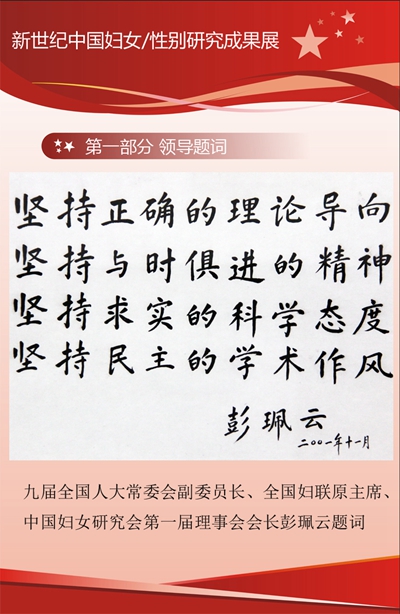 新世纪中国妇女/性别研究成果展
第一部分 领导题词
坚持正确的理论导向
坚持与时俱进的精神
坚持求实的科学态度
坚持民主的学术作风
彭珮云
二〇〇一年十一月
九届全国人大常委会副委员长、全国妇联原主席、
中国妇女研究会第一届理事会会长彭珮云题词